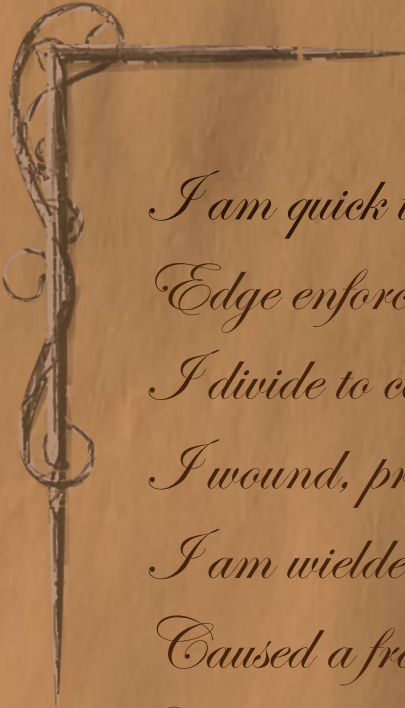 I am quick
Edge enforc
I divide to c
I wound, pr
I am wielde
Caused a fra